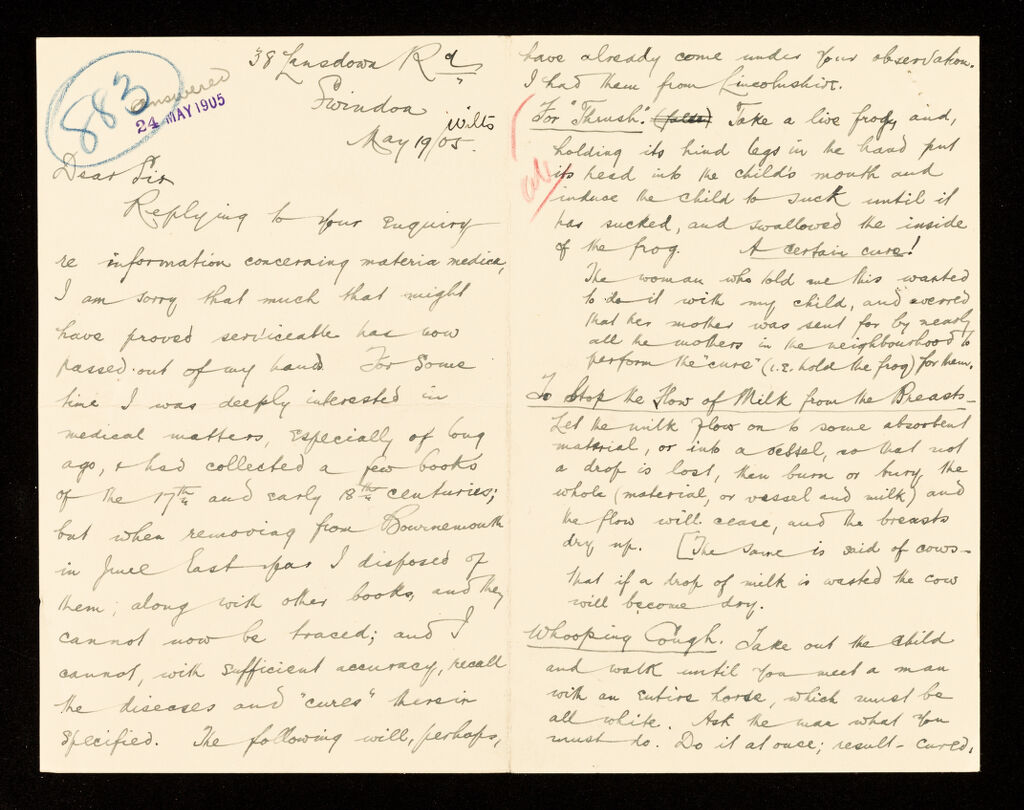 883
answered
24 MAY 1905
38 Lansdown Rd
Swindon
Wilts
May 19/05.
Dear Sir
Replying to your enquiry
re information concerning materia medica,
I am sorry that much that might
have proved serviceable has now
passed out of my hands. For some
time I was deeply interested in
medical matters, especially of long
ago, & had collected a few books
of the 17th and early 18th centuries;
but when removing from Bournemouth
in June last year I disposed of
them, along with other books, and they
cannot now be traced; and I
cannot, with sufficient accuracy, recall
the diseases and "cures" therein
specified. The following will, perhaps,
have already come under your observation.
I had them from Lincolnshire.
For "Thrush". Take a live frog, and,
holding its hind legs in the hand put
its head into the child's mouth and
induce the child to suck until it
has sucked, and swallowed the inside
of the frog. A certain cure!
The woman who told me this wanted
to do it with my child, and averred
that her mother was sent for by nearly
all the mothers in the neighbourhood to
perform the "cure" (i.e. hold the frog) for them.
To Stop the Flow of Milk from the Breasts-
Let the milk flow on to some absorbent
material, or into a vessel, so that not
a drop is lost, then burn or bury the
whole (material, or vessel and milk) and
the flow will cease, and the breasts
dry up. [The same is said of cows-
that if a drop of milk is wasted the cow
will become dry.
Whooping Cough. Take out the child
and walk until you meet a man
with an entire horse, which must be
all white. Ask the man what you
must do. Do it at once; result - cured.